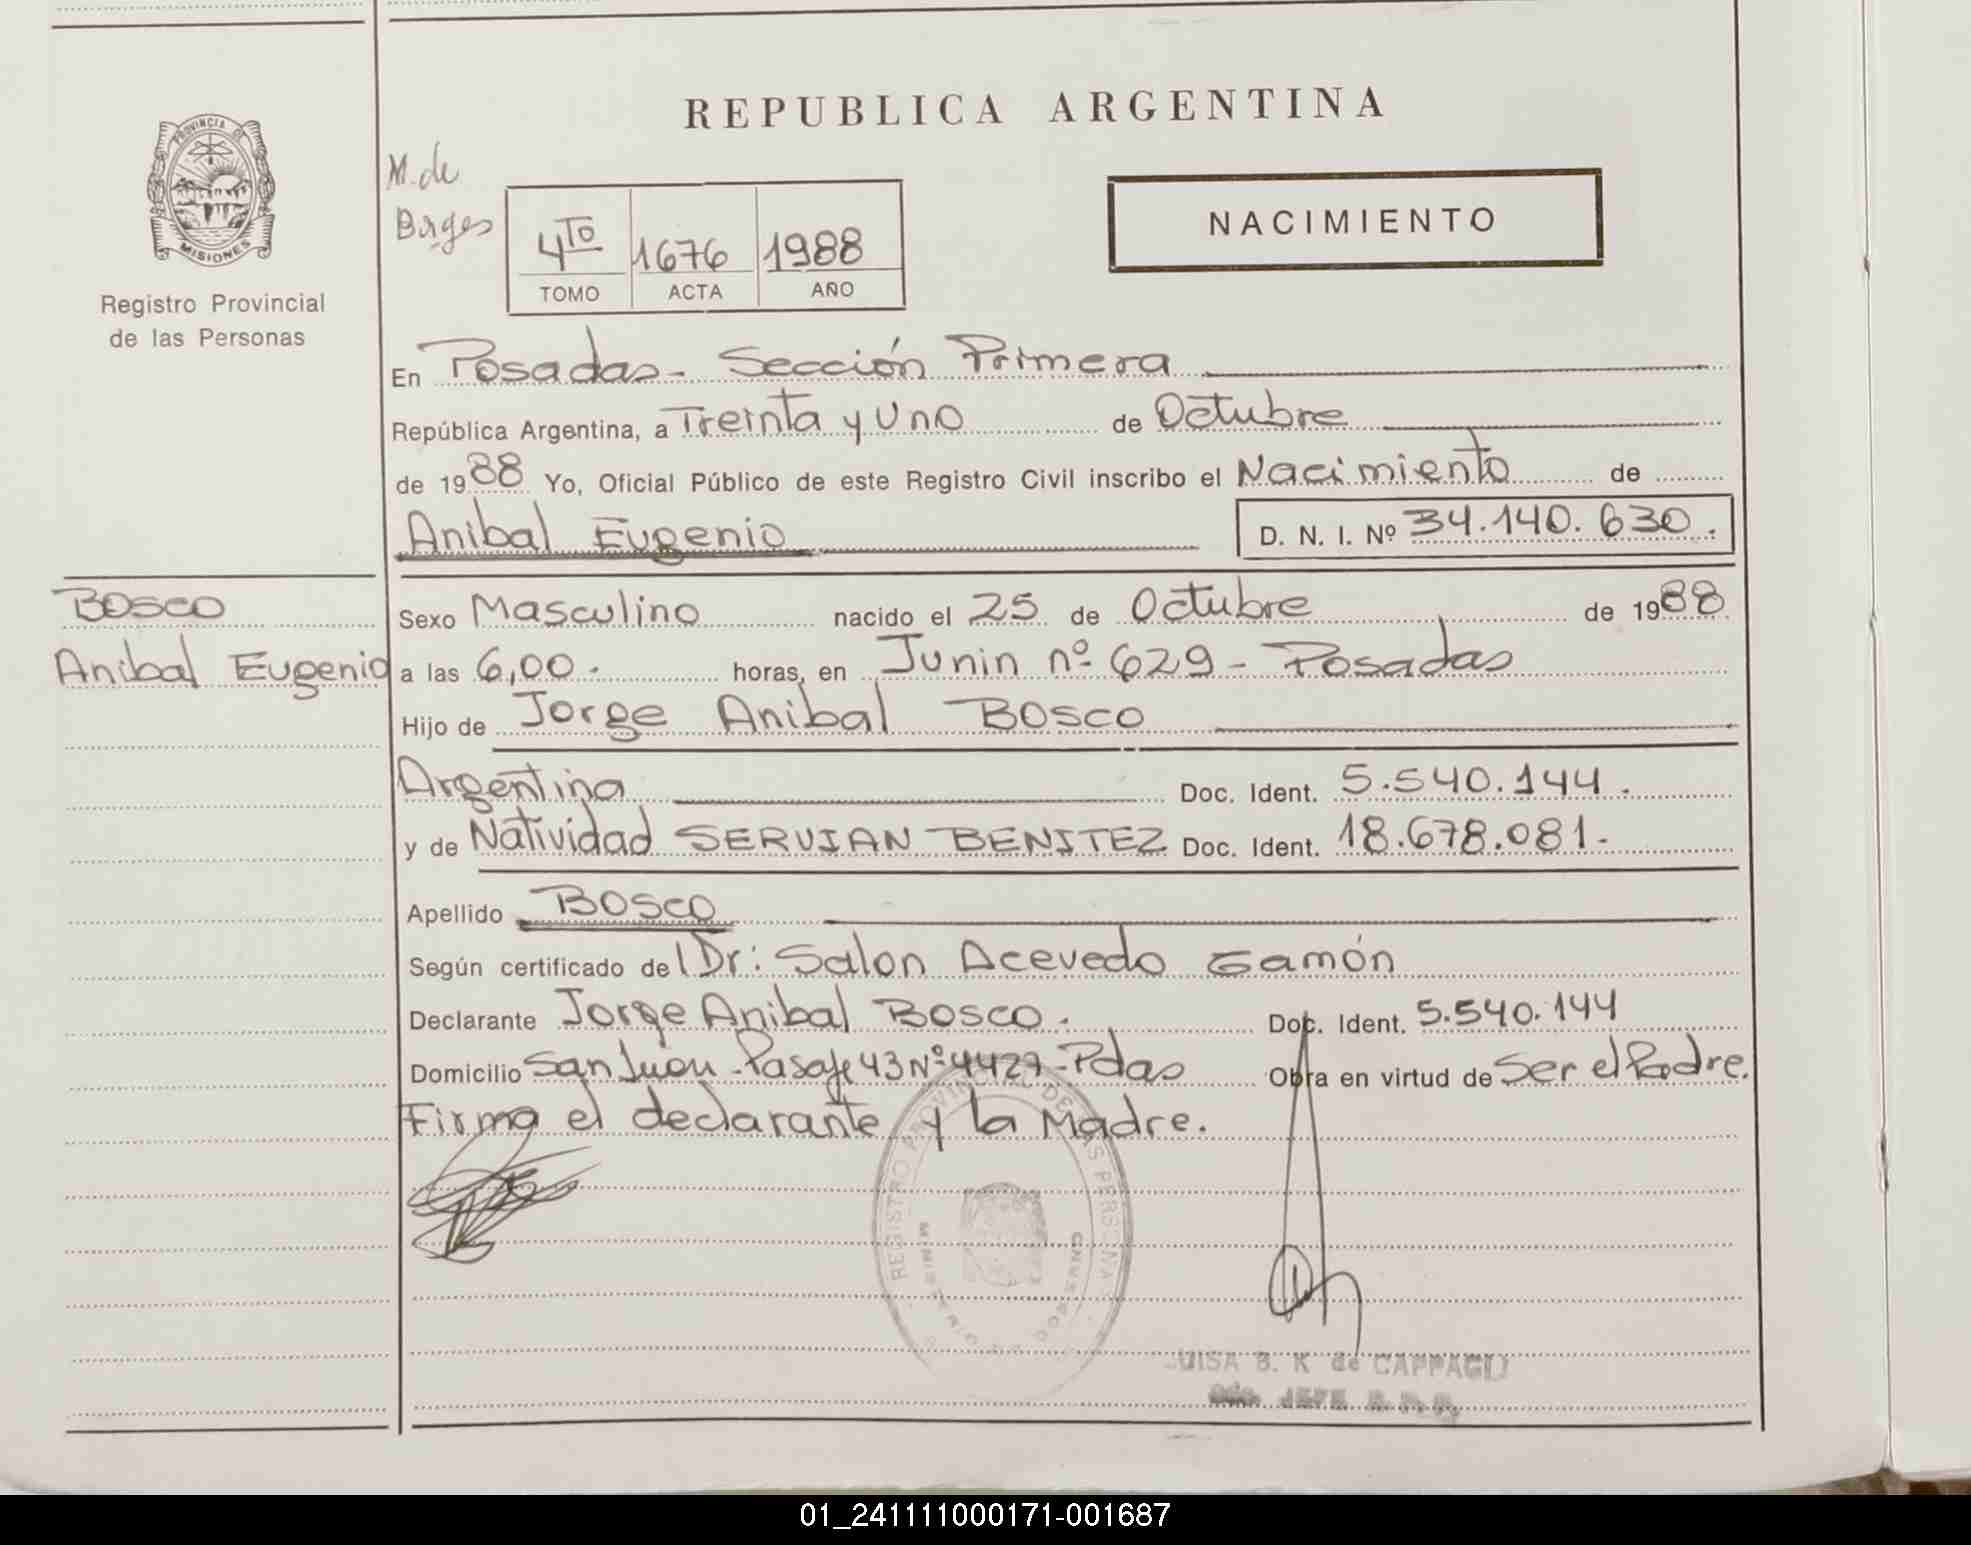 REPUBLICA ARGENTINA
PROVINCIA DE
MISIONES
Registro Provincial
de las Personas
M. de
Borges
NACIMIENTO
4TO 1676 1988
TOMO ACTA AÑO
En Posadas - Sección Primera
República Argentina, a Treinta y Uno de Octubre
de 1988 Yo, Oficial Público de este Registro Civil inscribo el Nacimiento de
Anibal Eugenio D. N. I. Nº 34.140.630.
BOSCO
Anibal Eugenio
Sexo Masculino nacido el 25 de Octubre de 1988
a las 6,00. horas, en Junin nº 629 - Posadas
Hijo de Jorge Anibal BOSCO
Argentina Doc. Ident. 5.540.144.
y de Natividad SERVIAN BENITEZ Doc. Ident. 18.678.081.
Apellido BOSCO
Según certificado de Dr: Salon Acevedo Gamón
Declarante Jorge Anibal BOSCO. Doc. Ident. 5.540.144
Domicilio San Juan - Pasaje 43 Nº 4427 - Pdas Obra en virtud de Ser el Padre.
Firma el declarante y la Madre.
REGISTRO PROVINCIAL DE LAS PERSONAS
MINISTERIO DE GOBIERNO
LUISA B. K de CAPPAGLI
JEFE R. P. P.
01_241111000171-001687